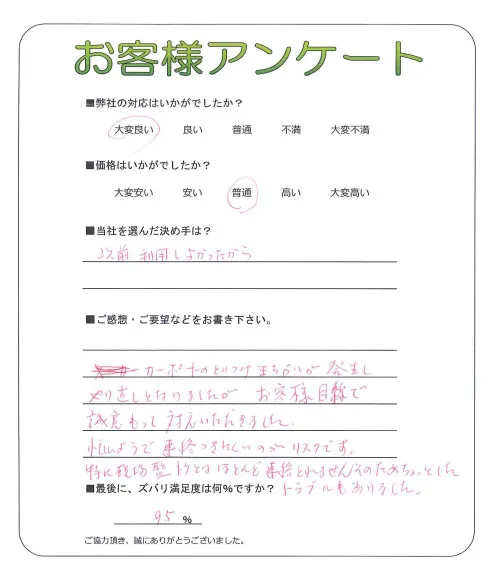 お客様アンケート
■弊社の対応はいかがでしたか？
大変良い 良い 普通 不満 大変不満
■価格はいかがでしたか？
大変安い 安い 普通 高い 大変高い
■当社を選んだ決め手は？
以前 利用しよかったから
■ご感想・ご要望などをお書き下さい。
カーポートのとりつけまちがいが 発生し
やり直しとなりましたが お客様目線で
誠意もって 対応いただきました。
忙しいようで 連絡つきにくいのが リスクです。
特に現場監トクとはほとんど連絡とれません!そのためちょっとした
トラブルもありました。
■最後に、ズバリ満足度は何%ですか？
95 %
ご協力頂き、誠にありがとうございました。